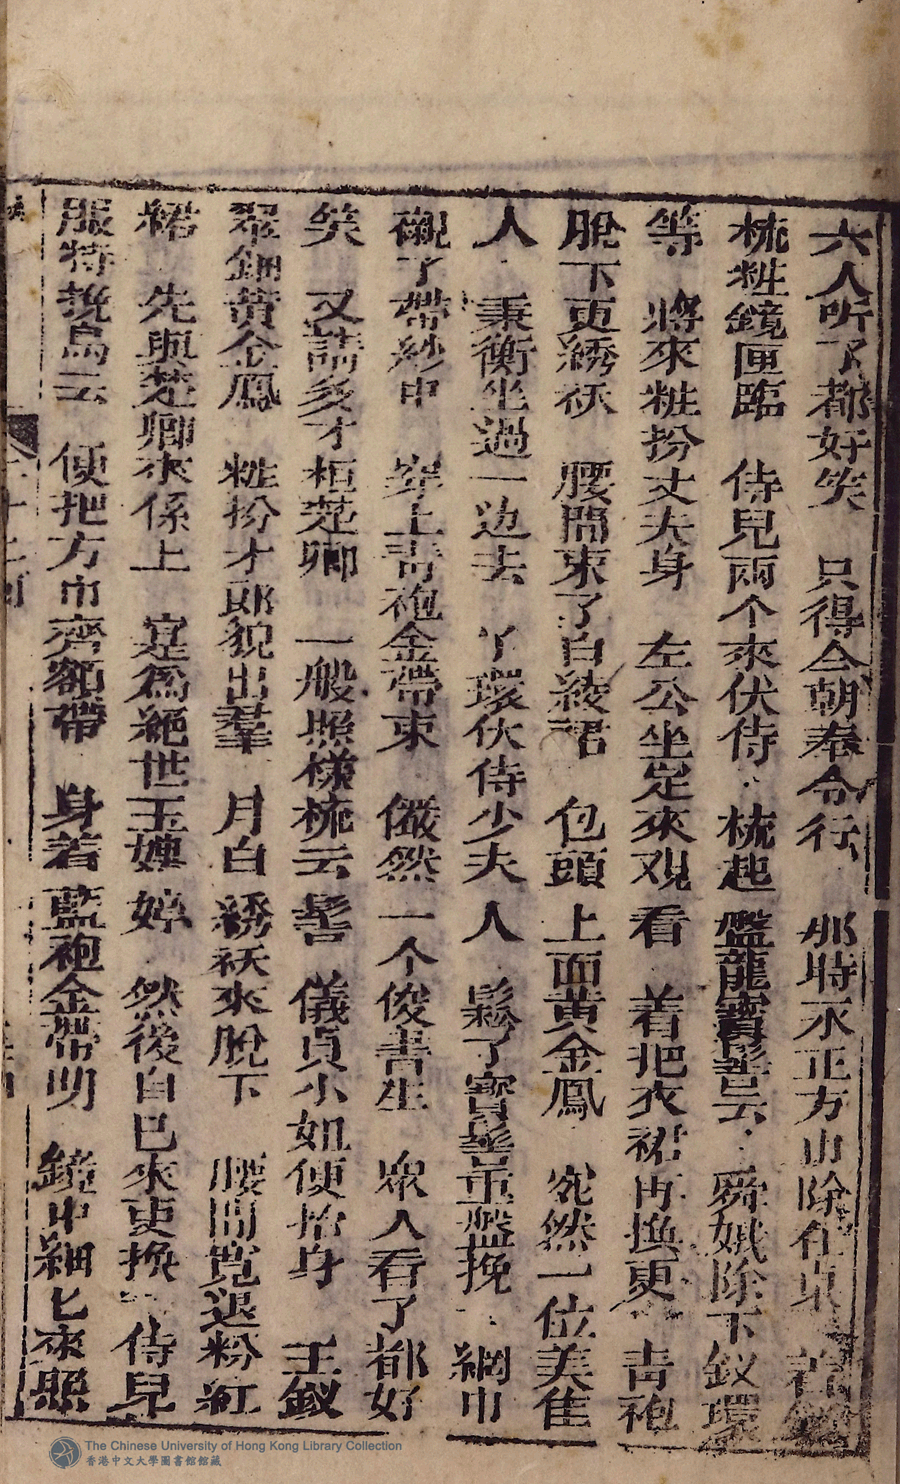 六人听了都好笑　只得今朝奉令行　那時永正方巾除在
梳粧鏡匣臨　侍兒兩个來伏侍　梳起盤龍寳髻云　舜娥除下釵環
等　將來粧扮丈夫身　左公坐定來观看　着把衣裙再換更　青袍
脫下更綉袄　腰間束了白綾裙　包頭上面黄金鳳　宛然一位美隹
人　秉衡坐過一边去　丫環伏侍少夫人　鬆了寳髻重盤挽　網巾
襯了帶紗巾　穿上青袍金帶束　儼然一个俊書生　衆人看了都好
笑　又請多才桓楚卿　一般照様梳云髻　儀貞小姐便抬身　玉釵
翠鈿黄金鳳　粧扮才郎貌出羣　月白綉袄來脫下　腰間寛退粉紅
裙　先與楚卿來係上　寔為絕世玉娉婷　然後自巳來更換　侍兒
服侍挽烏云　便把方巾齊額帶　身着藍袍金帶明　鏡中細匕來照
The Chinese University of Hong Kong Library Collection
香港中文大學圖書館館藏